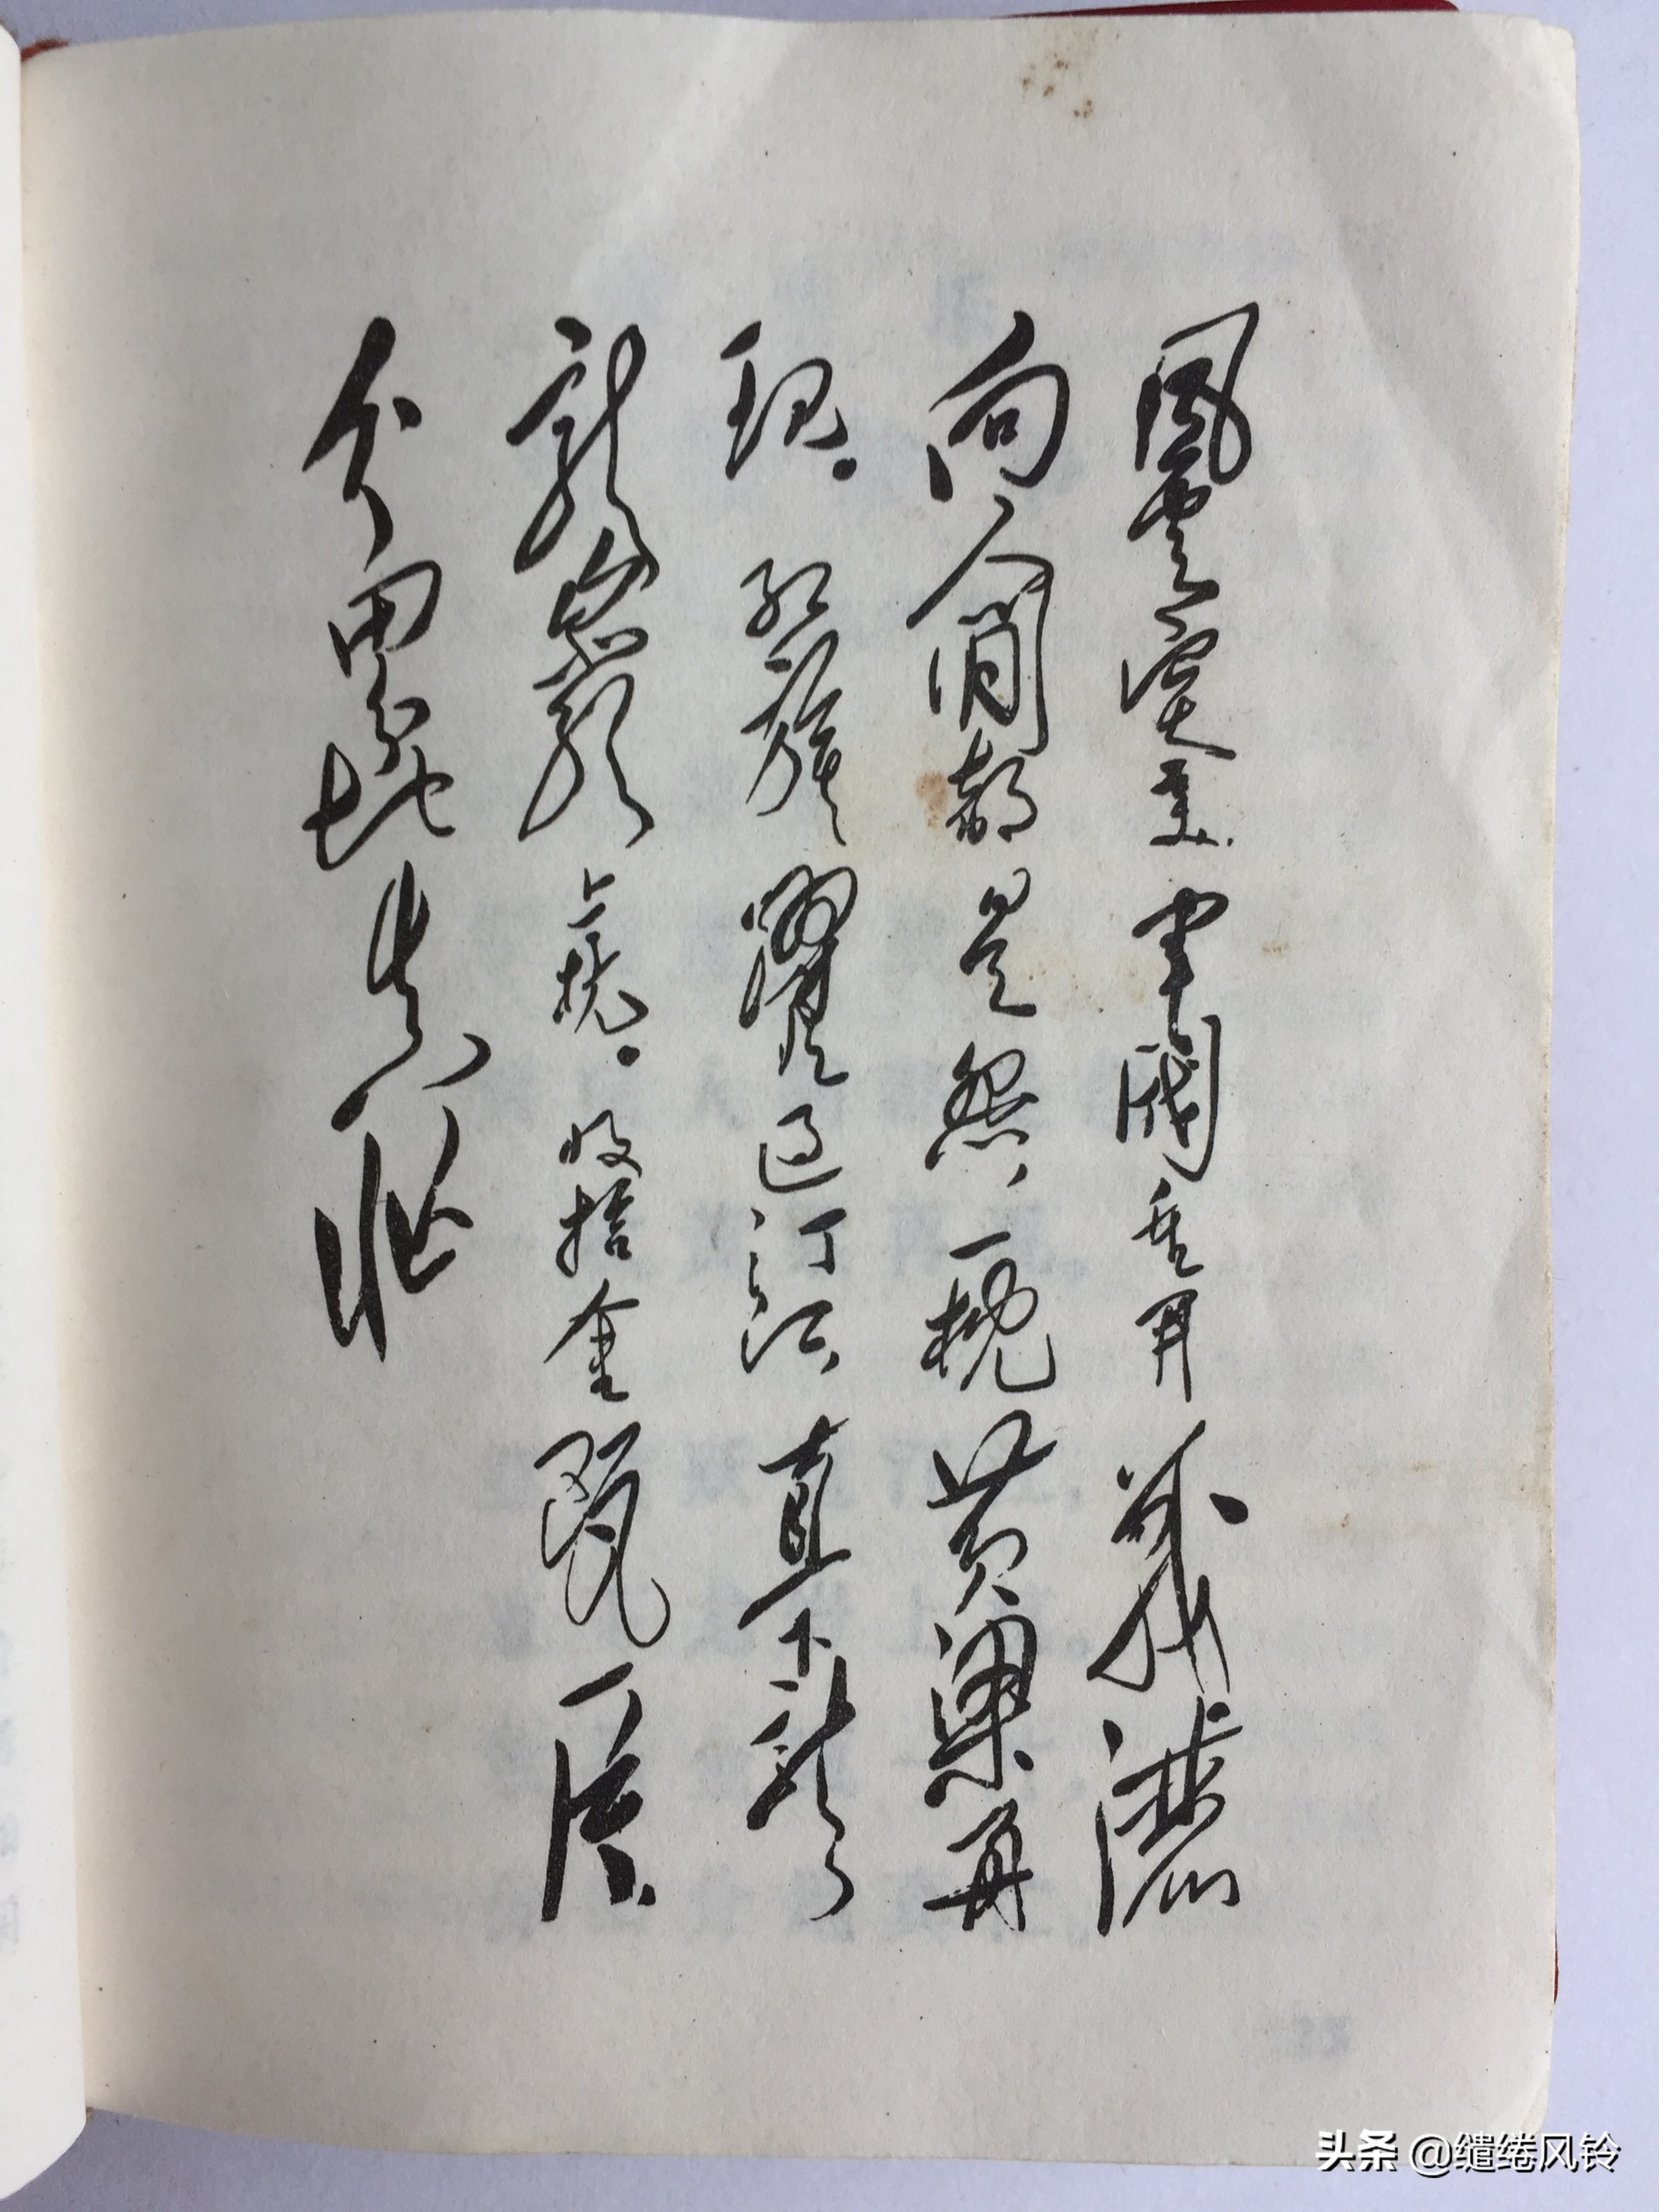 風雲突变,軍閥重开戰灑
向人间都是怨,一枕黄粱再
現。红旗躍过汀江,直下龍
龍巖上杭。收拾金甌一片,
分田分地真忙
头条 @缱绻风铃